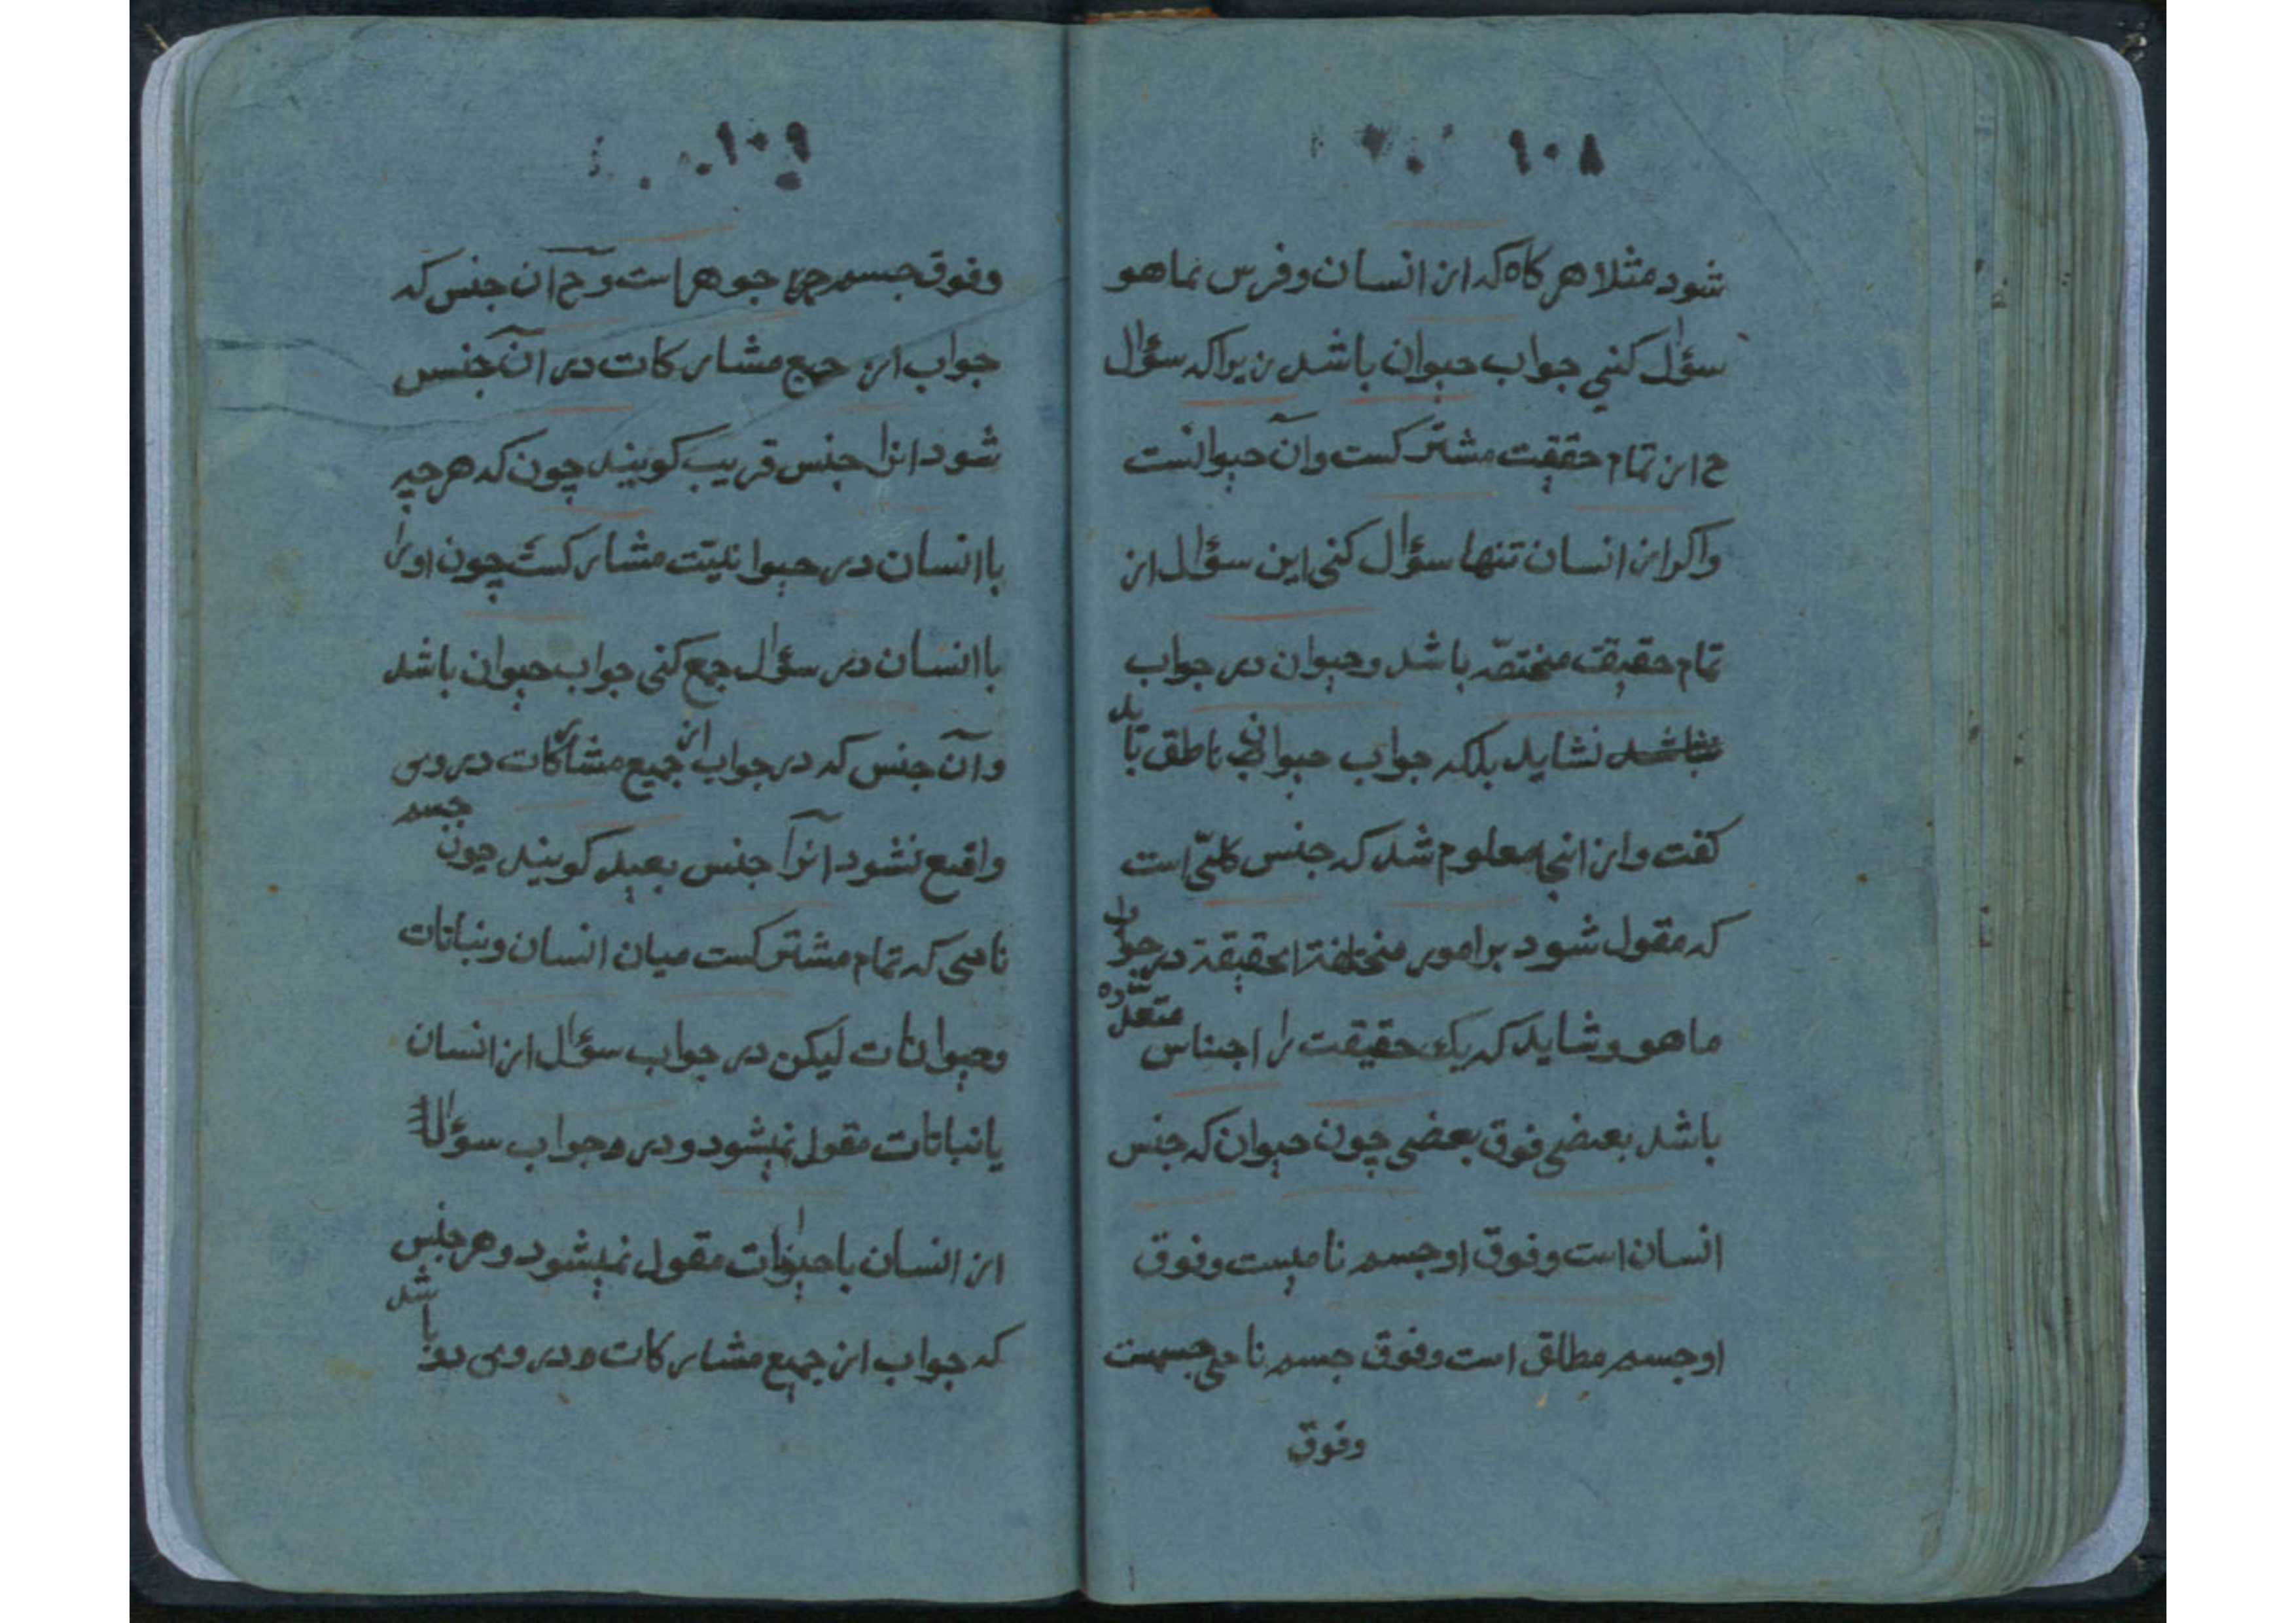 ۱۰۸
شود مثلا هر کاه که از انسان و فرس بماهو
سؤال کنی جواب حیوان باشد زیرا که سؤال
ح از تمام حقیقت مشترکست وآن حیوانست
واکر از انسان تنها سؤال کنی این سؤال از
تمام حقیقت مختصّه باشد وحیوان در جواب
نشاید بلکه جواب حیوان ناطق باید
کفت واز اینجا معلوم شد که جنس کلیّ است
که مقول شود بر امور مختلفة الحقیقة در جواب
ماهو وشاید که یک حقیقت را اجناس متعدّده
باشد بعضی فوق بعضی چون حیوان که جنس
انسان است وفوق او جسم نامیست وفوق
او جسم مطلق است وفوق جسم نامی جسمست
وفوق
۱۰۹
وفوق جسم جوهر است وح آن جنس که
جواب از جمیع مشارکات در آن جنس
شود انرا جنس قریب کویند چون که هرچیه
با انسان در حیوانیّت مشارکست چون اورا
با انسان در سؤال جمع کنی جواب حیوان باشد
وآن جنس که در جواب از جمیع مشارکات در وی
واقع نشود آنرا جنس بعید کویند چون جسم
نامی که تمام مشترکست میان انسان ونباتات
وحیوانات لیکن در جواب سؤال از انسان
یا نباتات مقول نمیشود ودر جواب سؤال
از انسان با حیوانات مقول نمیشود وهر جنس
که جواب از جمیع مشارکات در وی دو باشد